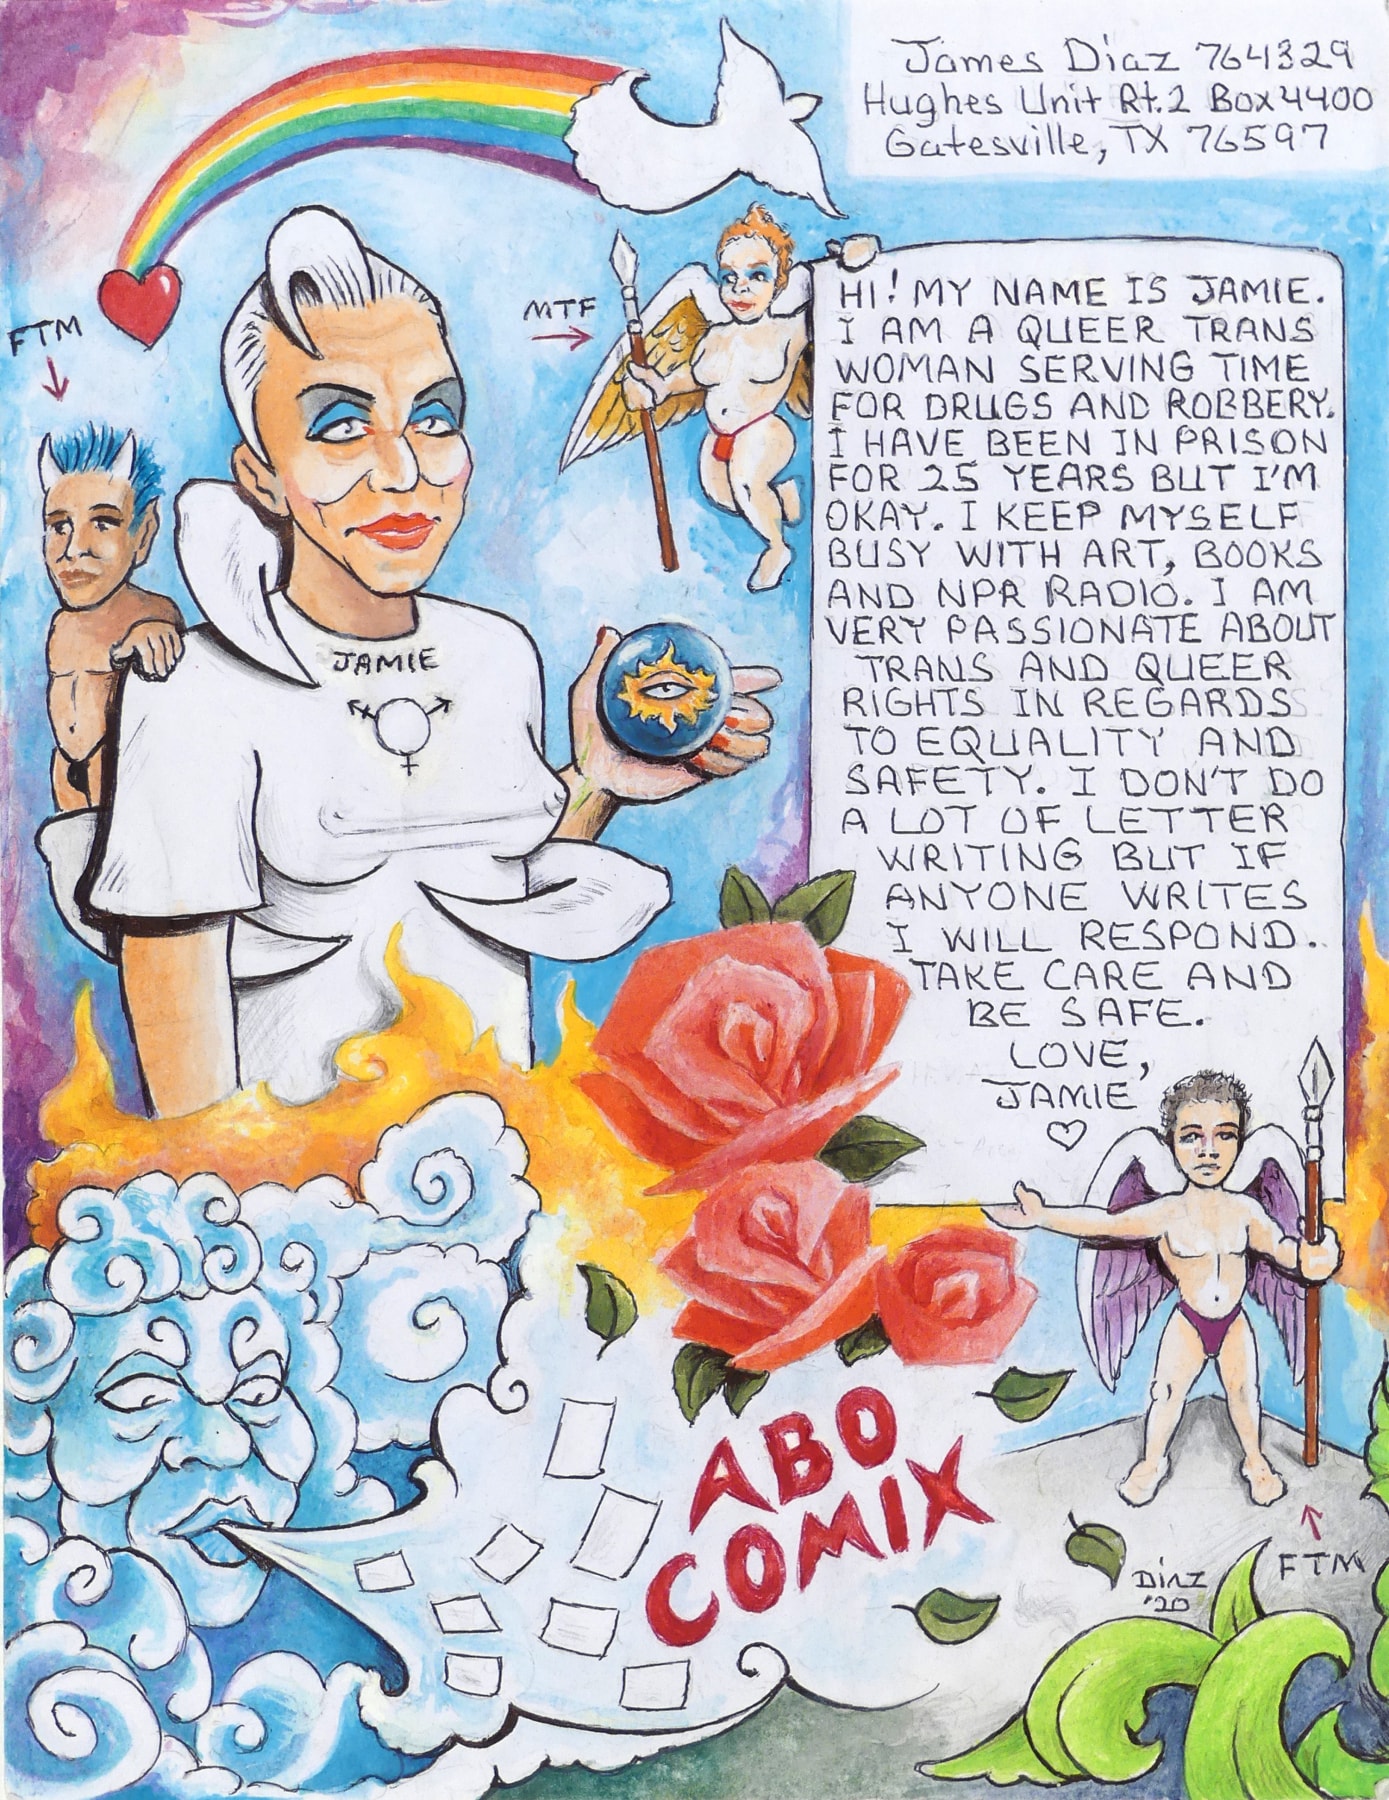 James Diaz 764329
Hughes Unit Rt.2 Box 4400
Gatesville, TX 76597
FTM
MTF
HI! MY NAME IS JAMIE.
I AM A QUEER TRANS
WOMAN SERVING TIME
FOR DRUGS AND ROBBERY.
I HAVE BEEN IN PRISON
FOR 25 YEARS BUT I'M
OKAY. I KEEP MYSELF
BUSY WITH ART, BOOKS
AND NPR RADIO. I AM
VERY PASSIONATE ABOUT
TRANS AND QUEER
RIGHTS IN REGARDS
TO EQUALITY AND
SAFETY. I DON'T DO
A LOT OF LETTER
WRITING BUT IF
ANYONE WRITES
I WILL RESPOND.
TAKE CARE AND
BE SAFE.
LOVE,
JAMIE
JAMIE
ABO
COMIX
DIAZ
'20
FTM